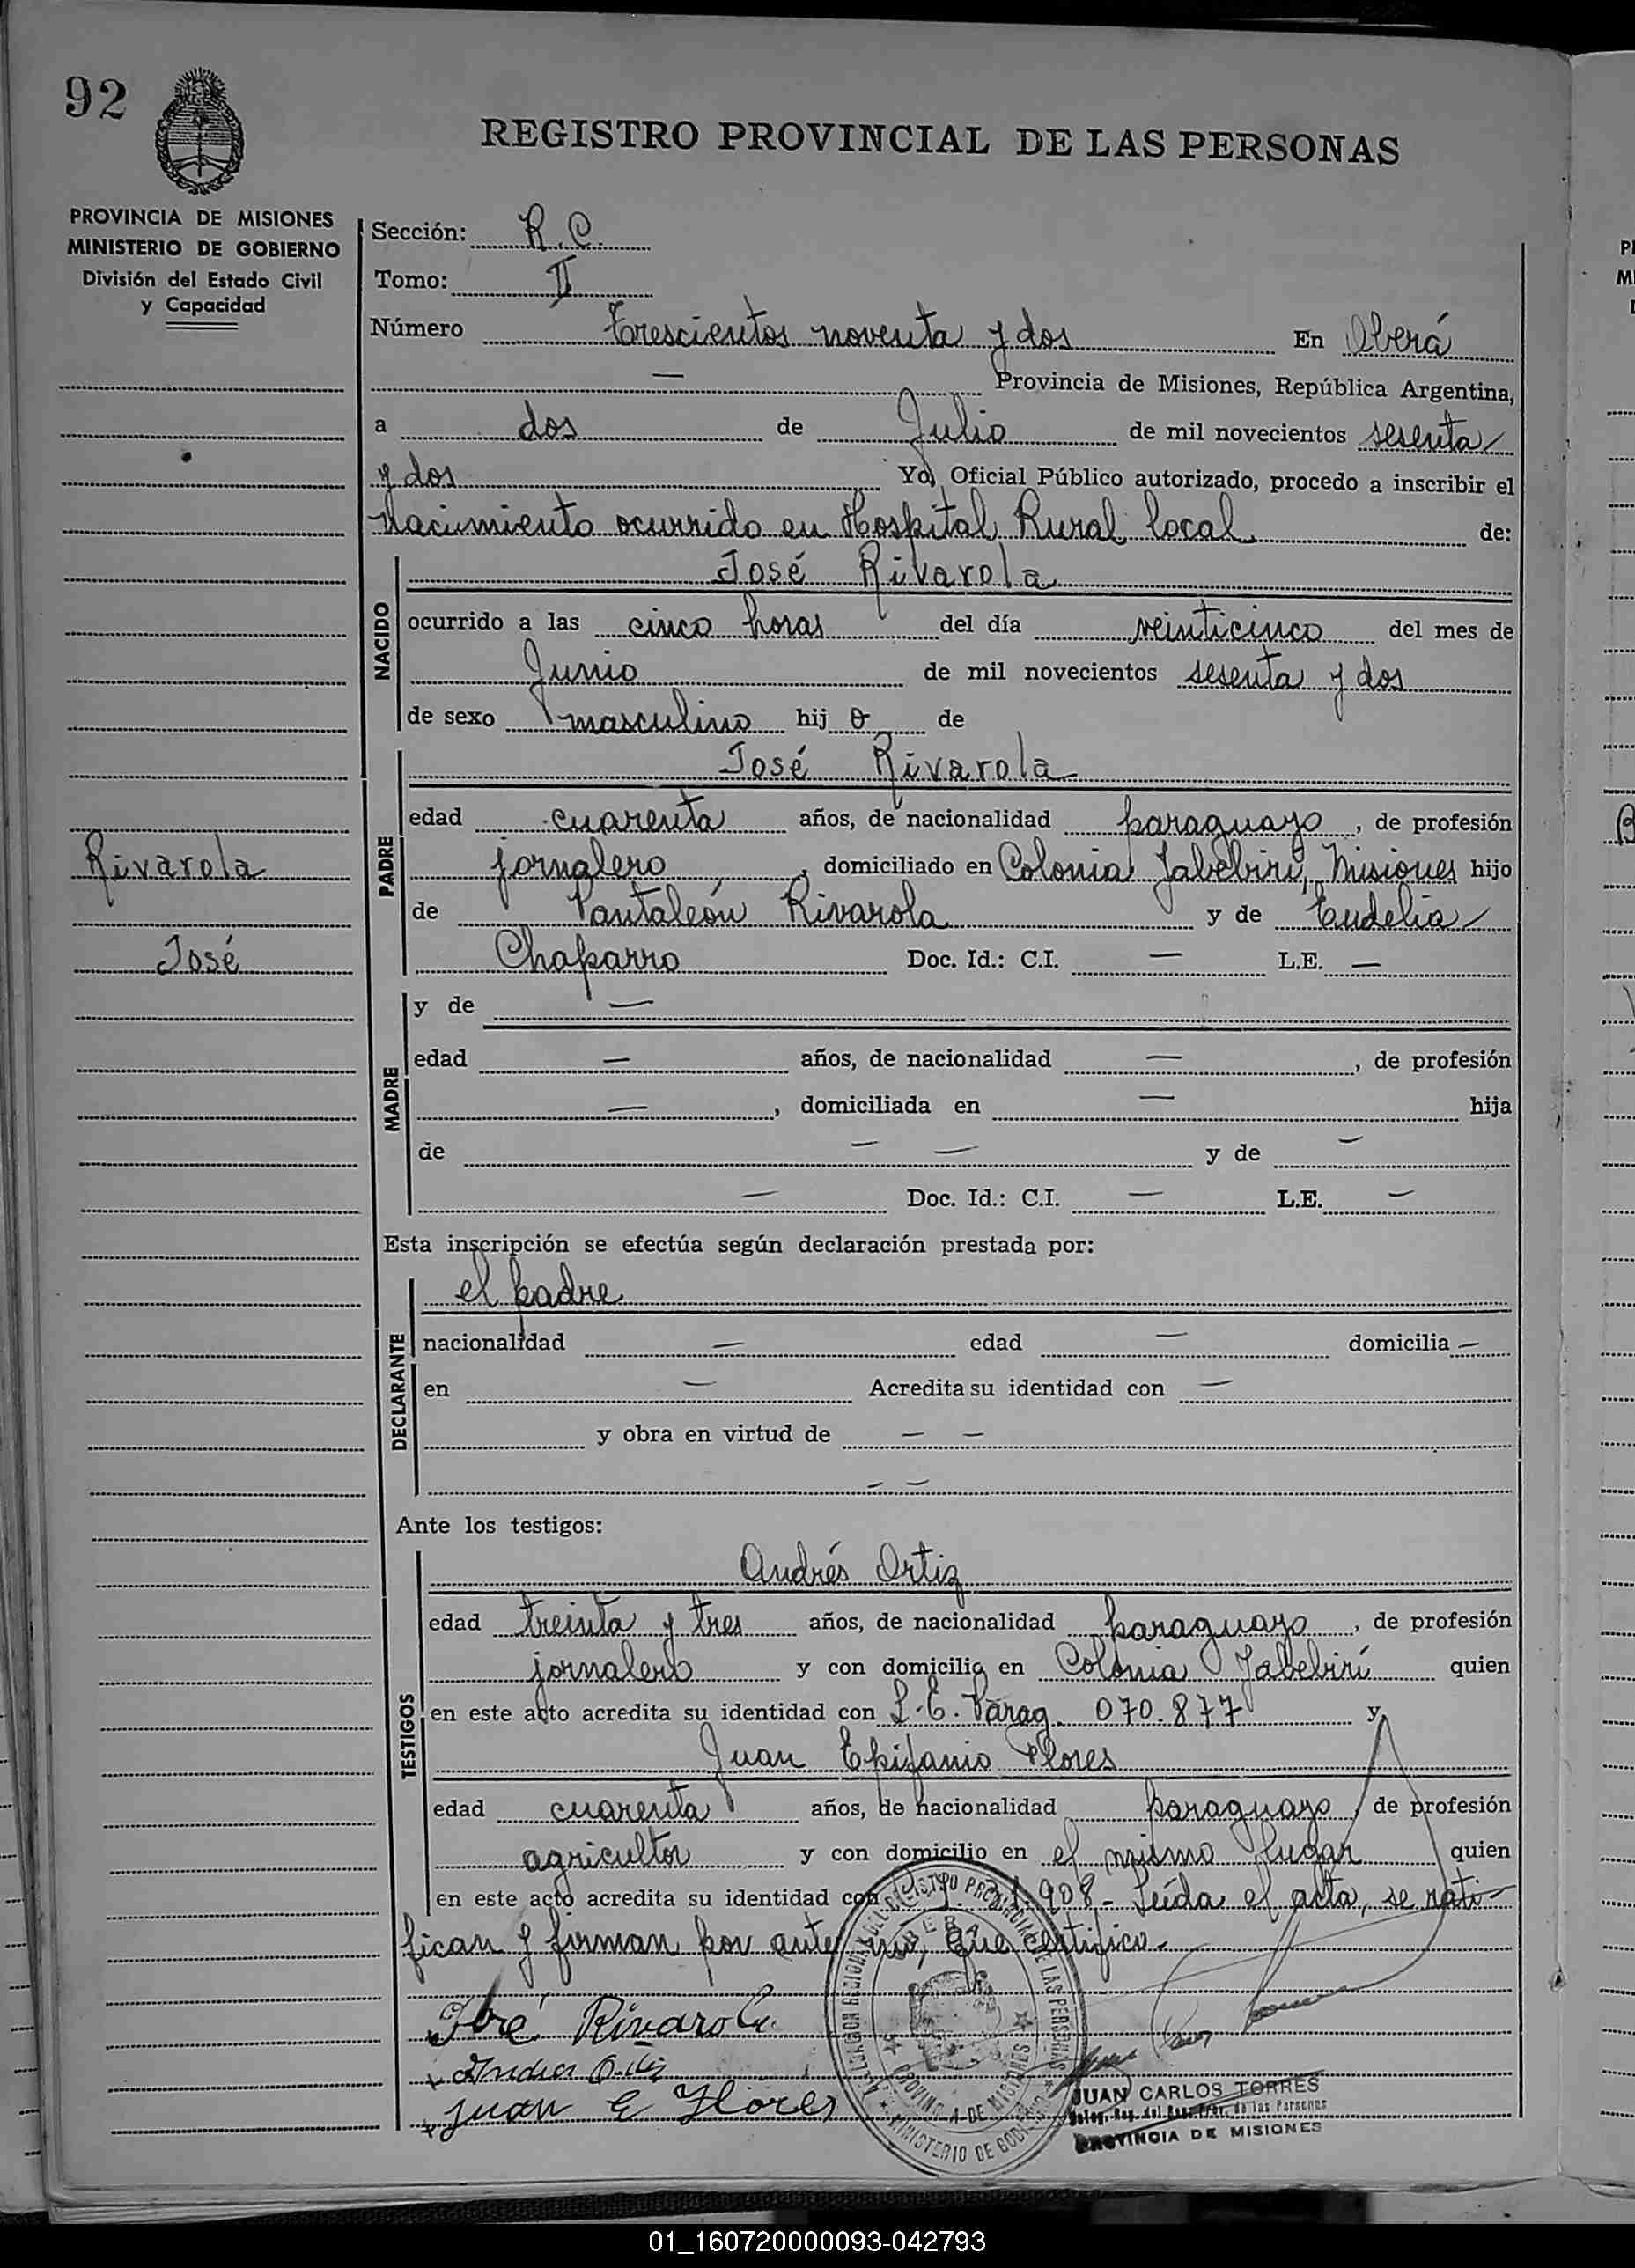 92
REGISTRO PROVINCIAL DE LAS PERSONAS
PROVINCIA DE MISIONES
MINISTERIO DE GOBIERNO
División del Estado Civil
y Capacidad
Sección: R.C.
Tomo: II
Número Trescientos noventa y dos En Oberá
— Provincia de Misiones, República Argentina,
a dos de Julio de mil novecientos sesenta
y dos Yo, Oficial Público autorizado, procedo a inscribir el
nacimiento ocurrido en Hospital Rural local de:
NACIDO
José Rivarola
ocurrido a las cinco horas del día veinticinco del mes de
Junio de mil novecientos sesenta y dos
de sexo masculino hij o de
PADRE
José Rivarola
edad cuarenta años, de nacionalidad paraguayo, de profesión
jornalero, domiciliado en Colonia Jabebirí, Misiones hijo
de Pantaleón Rivarola y de Eudelia
Chaparro Doc. Id.: C.I. — L.E. —
Rivarola
José
MADRE
y de —
edad — años, de nacionalidad —, de profesión
—, domiciliada en — hija
de — — y de —
— Doc. Id.: C.I. — L.E. —
Esta inscripción se efectúa según declaración prestada por:
DECLARANTE
el padre
nacionalidad — edad — domicilia —
en — Acredita su identidad con —
y obra en virtud de — —
— —
Ante los testigos:
TESTIGOS
Andrés Ortiz
edad treinta y tres años, de nacionalidad paraguayo, de profesión
jornalero y con domicilio en Colonia Jabebirí quien
en este acto acredita su identidad con L.E. Parag. 070.877 y
Juan Epifanio Flores
edad cuarenta años, de nacionalidad paraguayo, de profesión
agricultor y con domicilio en el mismo lugar quien
en este acto acredita su identidad con 908.- Leída el acta, se rati-
fican y firman por ante mí, que certifico.-
José Rivarola
Andres Ortiz
Juan E Flores
REGISTRO PROVINCIAL DE LAS PERSONAS
OBERA
PROVINCIA DE MISIONES
MINISTERIO DE GOBIERNO
JUAN CARLOS TORRES
PROVINCIA DE MISIONES
01_160720000093-042793